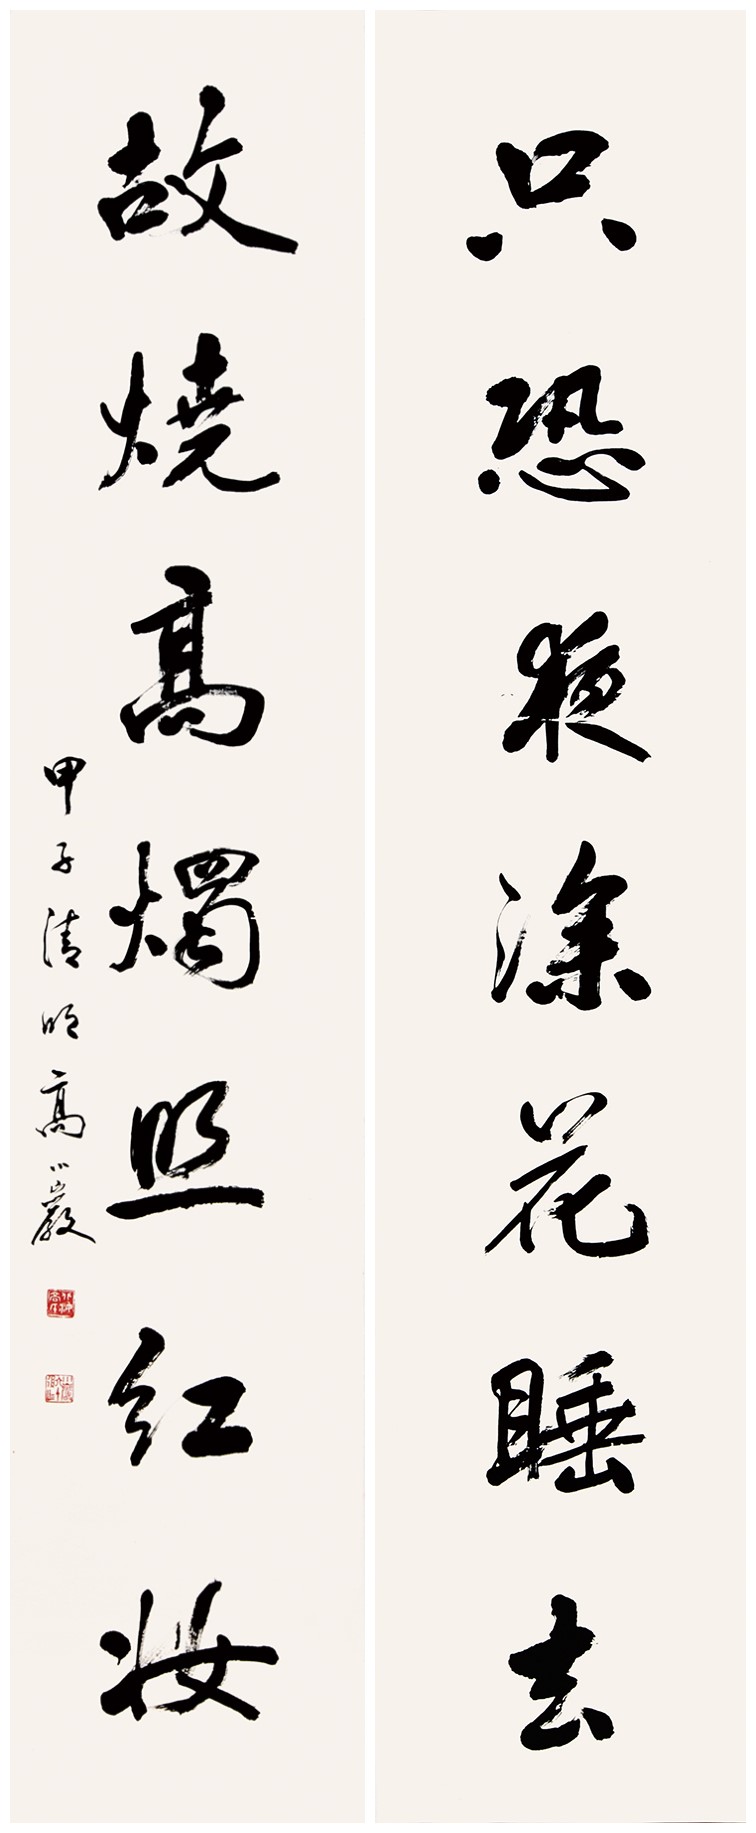 只恐夜深花睡去
故燒高燭照红妝
甲子清明高小巖